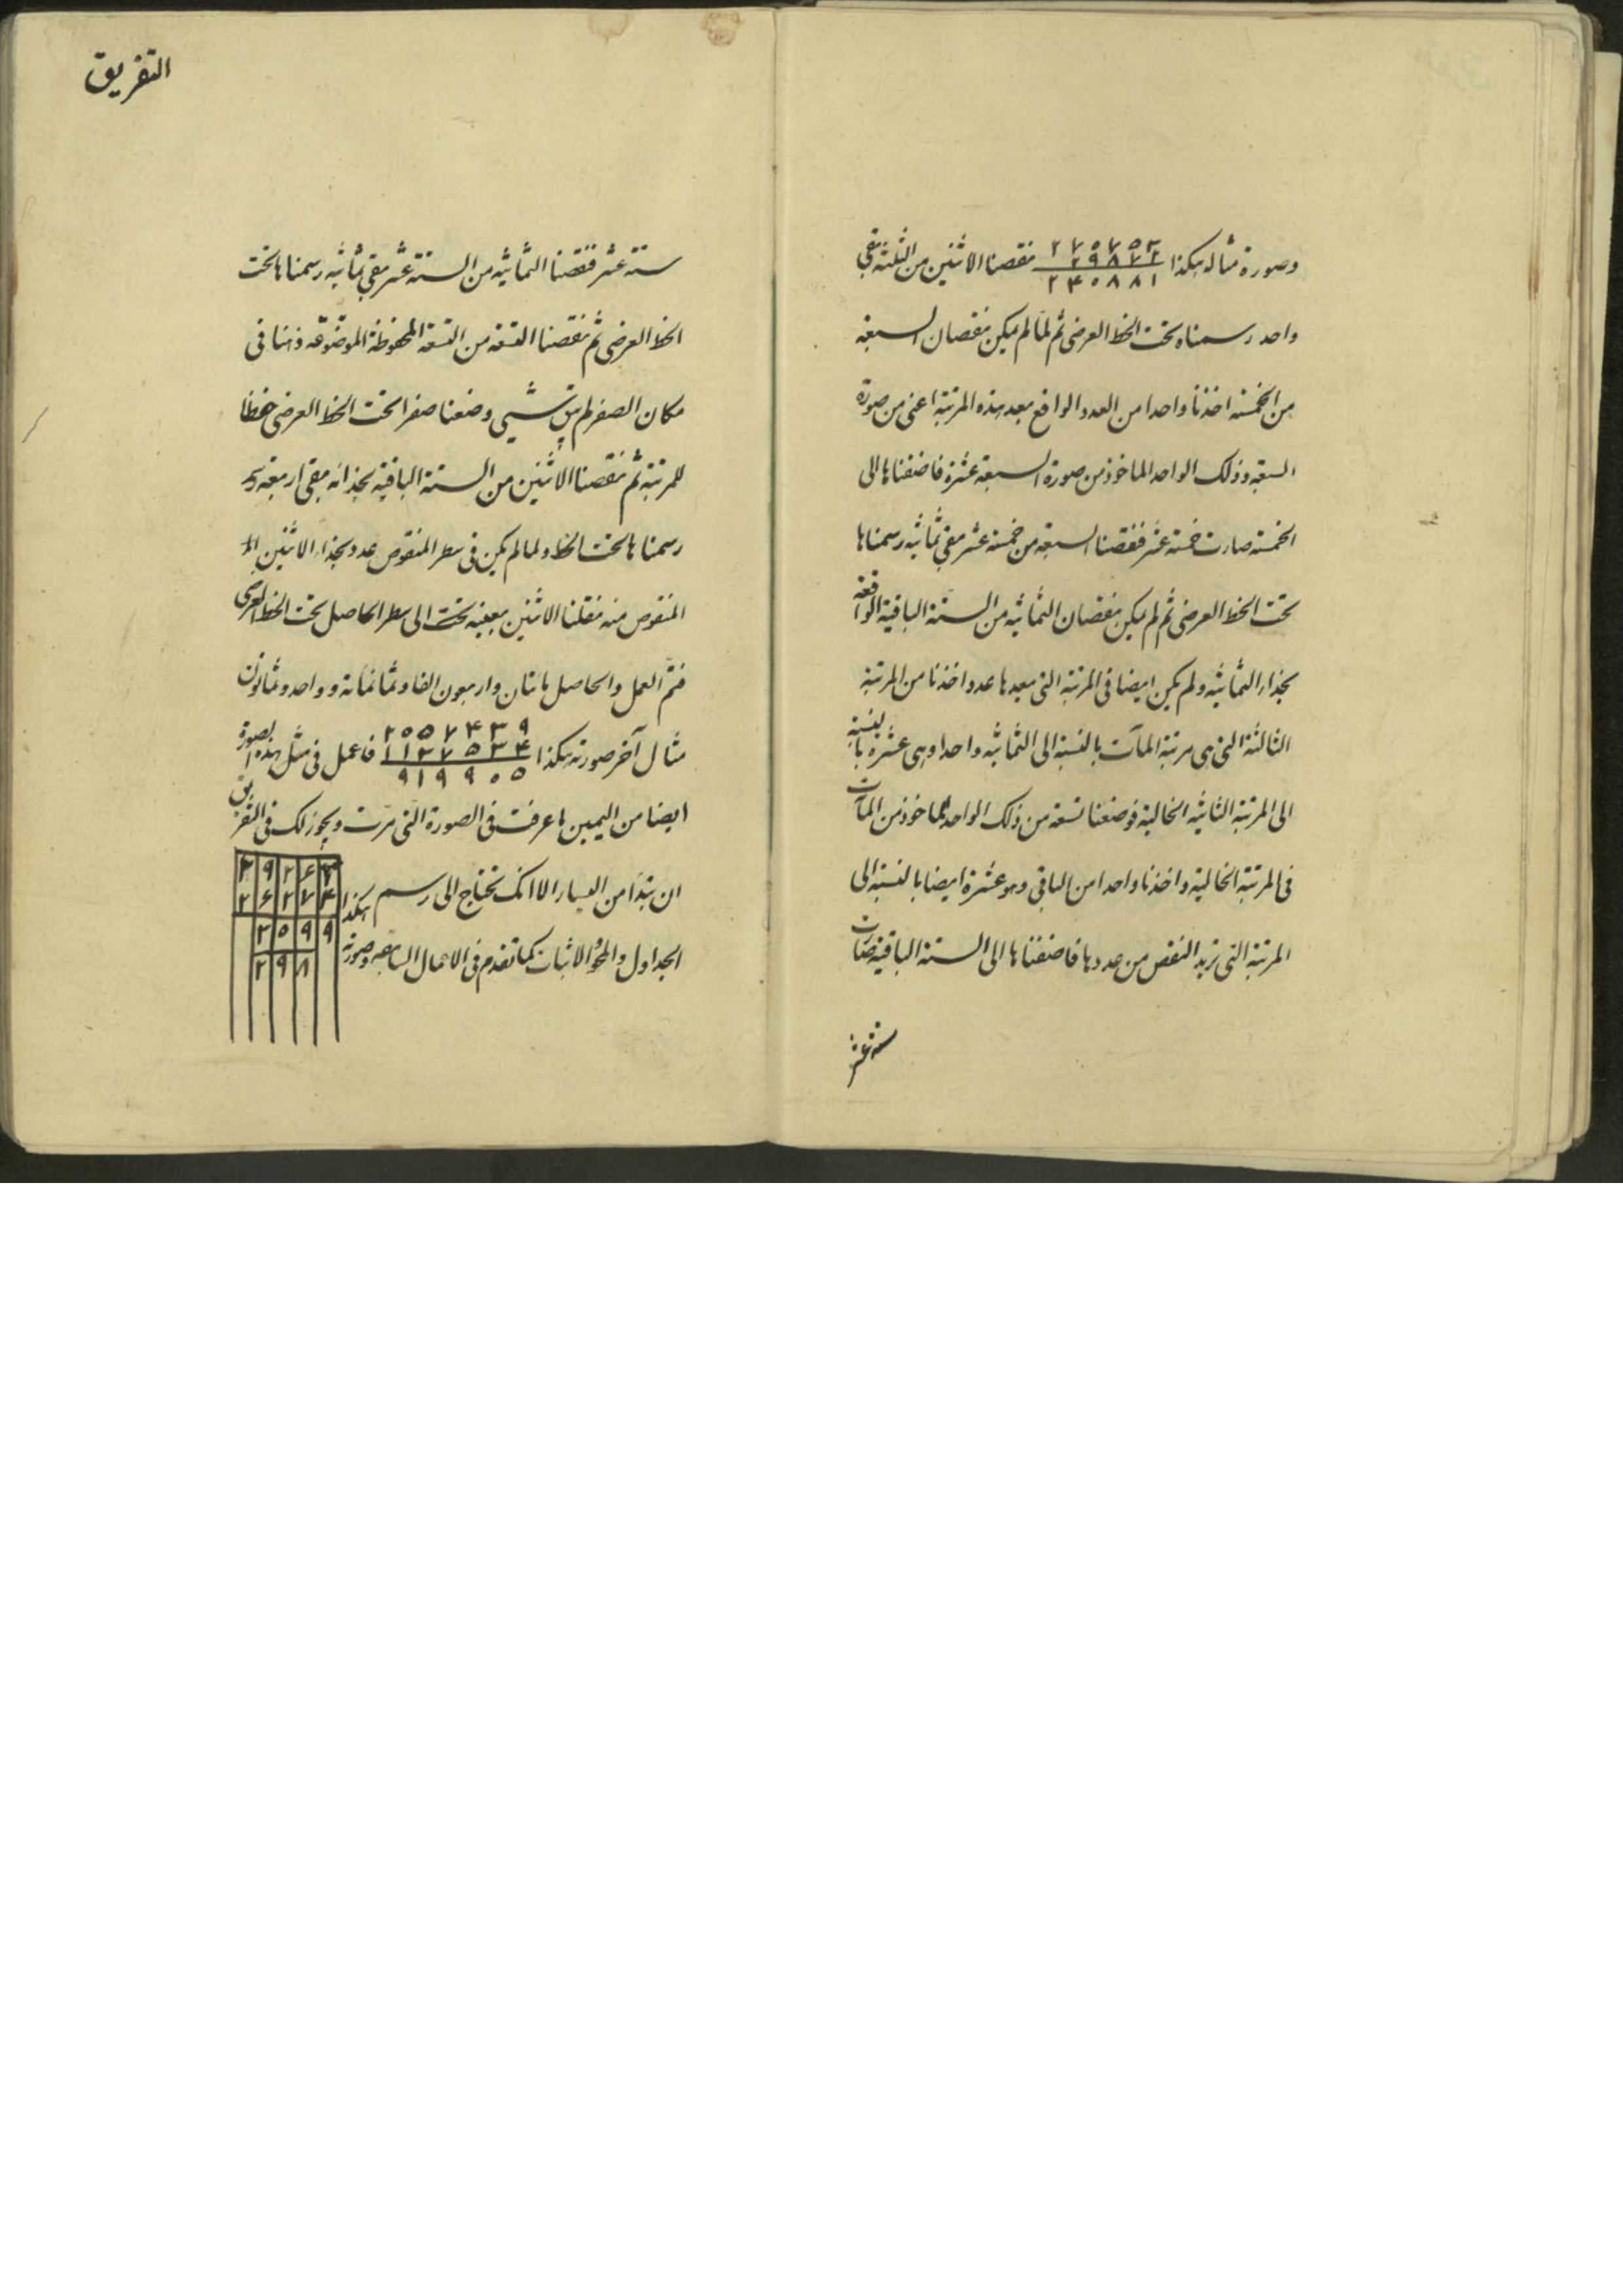 وصورة مثاله هكذا ٢٧٥٧٥٣ نقصنا الاثنين من الثلثة بقي
٢٩٨٧٢
٢٤٥٨٨١
واحد رسمناه تحت الخط العرضى ثم لما لم يكن نقصان السبعة
من الخمسة اخذنا واحدا من العدد الواقع بعد هذه المرتبة اعنى من صورة
السبعة وذلك الواحد الماخوذ من صورة السبعة عشرة فاضفناها الى
الخمسة صارت خمسة عشر فنقصنا السبعة من خمسة عشر فبقي ثمانيه رسمناها
تحت الخط العرضى ثم لم يكن نقصان الثمانيه من الستة الباقية الواقعة
بحذاء الثمانيه ولم يكن ايضا فى المرتبة التى بعدها عدد اخذنا من المرتبة
الثالثة التى هى مرتبة المآت بالنسبة الى الثمانيه واحدا وهى عشرة بالنسبة
الى المرتبة الثانية الخالية فوضعنا تسعة من ذلك الواحد الماخوذ من المآت
فى المرتبة الخالية واخذنا واحدا من الباقى وهو عشرة ايضا بالنسبة الى
المرتبة التى نريد النقص من عددها فاضفناها الى الستة الباقية صارت
ستة عشر
التفريق
ستة عشر فنقصنا الثمانيه من الستة عشر فبقي ثمانيه رسمناها تحت
الخط العرضى ثم نقصنا التسعة من التسعة المحفوظة الموضوعة ذهنا فى
مكان الصفر لم يبق شيى وضعنا صفرا تحت الخط العرضى حفظا
للمرتبة ثم نقصنا الاثنين من الستة الباقية بحذائه فبقى اربعة
رسمناها تحت الخط ولما لم يكن فى سطر المنقوص عدد بحذاء الاثنين
المنقوص منه نقلنا الاثنين بعينه الى سطر الحاصل تحت الخط العرضى
فتم العمل والحاصل ماتان واربعون الفا وثمانمائة وواحد وثمانون
مثال آخر صورته هكذا ٢٥٥٧٤٣٩ فاعمل فى مثل هذه الصورة
١١٣٧٥٣٤
٩١٩٩٠٥
ايضا من اليمين ما عرفت فى الصورة التى مرت ويجوز لك فى التفريق
ان تبتدا من اليسار الا انك تحتاج الى رسم
الجداول والمحو والاثبات كما تقدم فى الاعمال السابقة وصورته هكذا
٣ ٩ ٢ ٤ ٣
٢ ٤ ٢ ٧ ٤
٣ ٥ ٩ ٩
٢ ٩ ٨